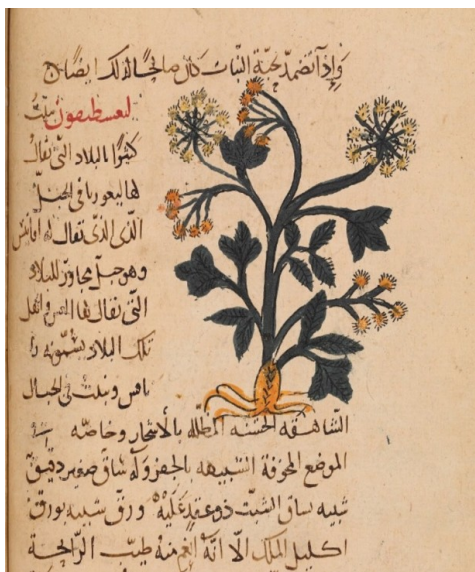 وإذا تضمد بحبة النبات كان صالحا لذلك ايضا
ليغسطيقون ينبت
كثيرا بالبلاد التى يقال
لها ليغوريا فى الجبل
الذى الذى يقال له افانينس
وهو جبل مجاور للبلاد
التى يقال لها واهل
تلك البلاد يسمونه
وينبت فى الجبال
الشاهقه الخشنه المظلله بالأشجار وخاصه
الموضع المجوفة الشبيهه بالحفر وله ساق صغير دقيق
شبيه بساق الشبت ذو عقد عليه ورق شبيه بورق
اكليل الملك الا انه انعم منه طيب الرائحة